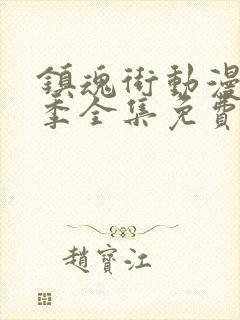 鎮魂街動漫
季全集免費
趙寶江